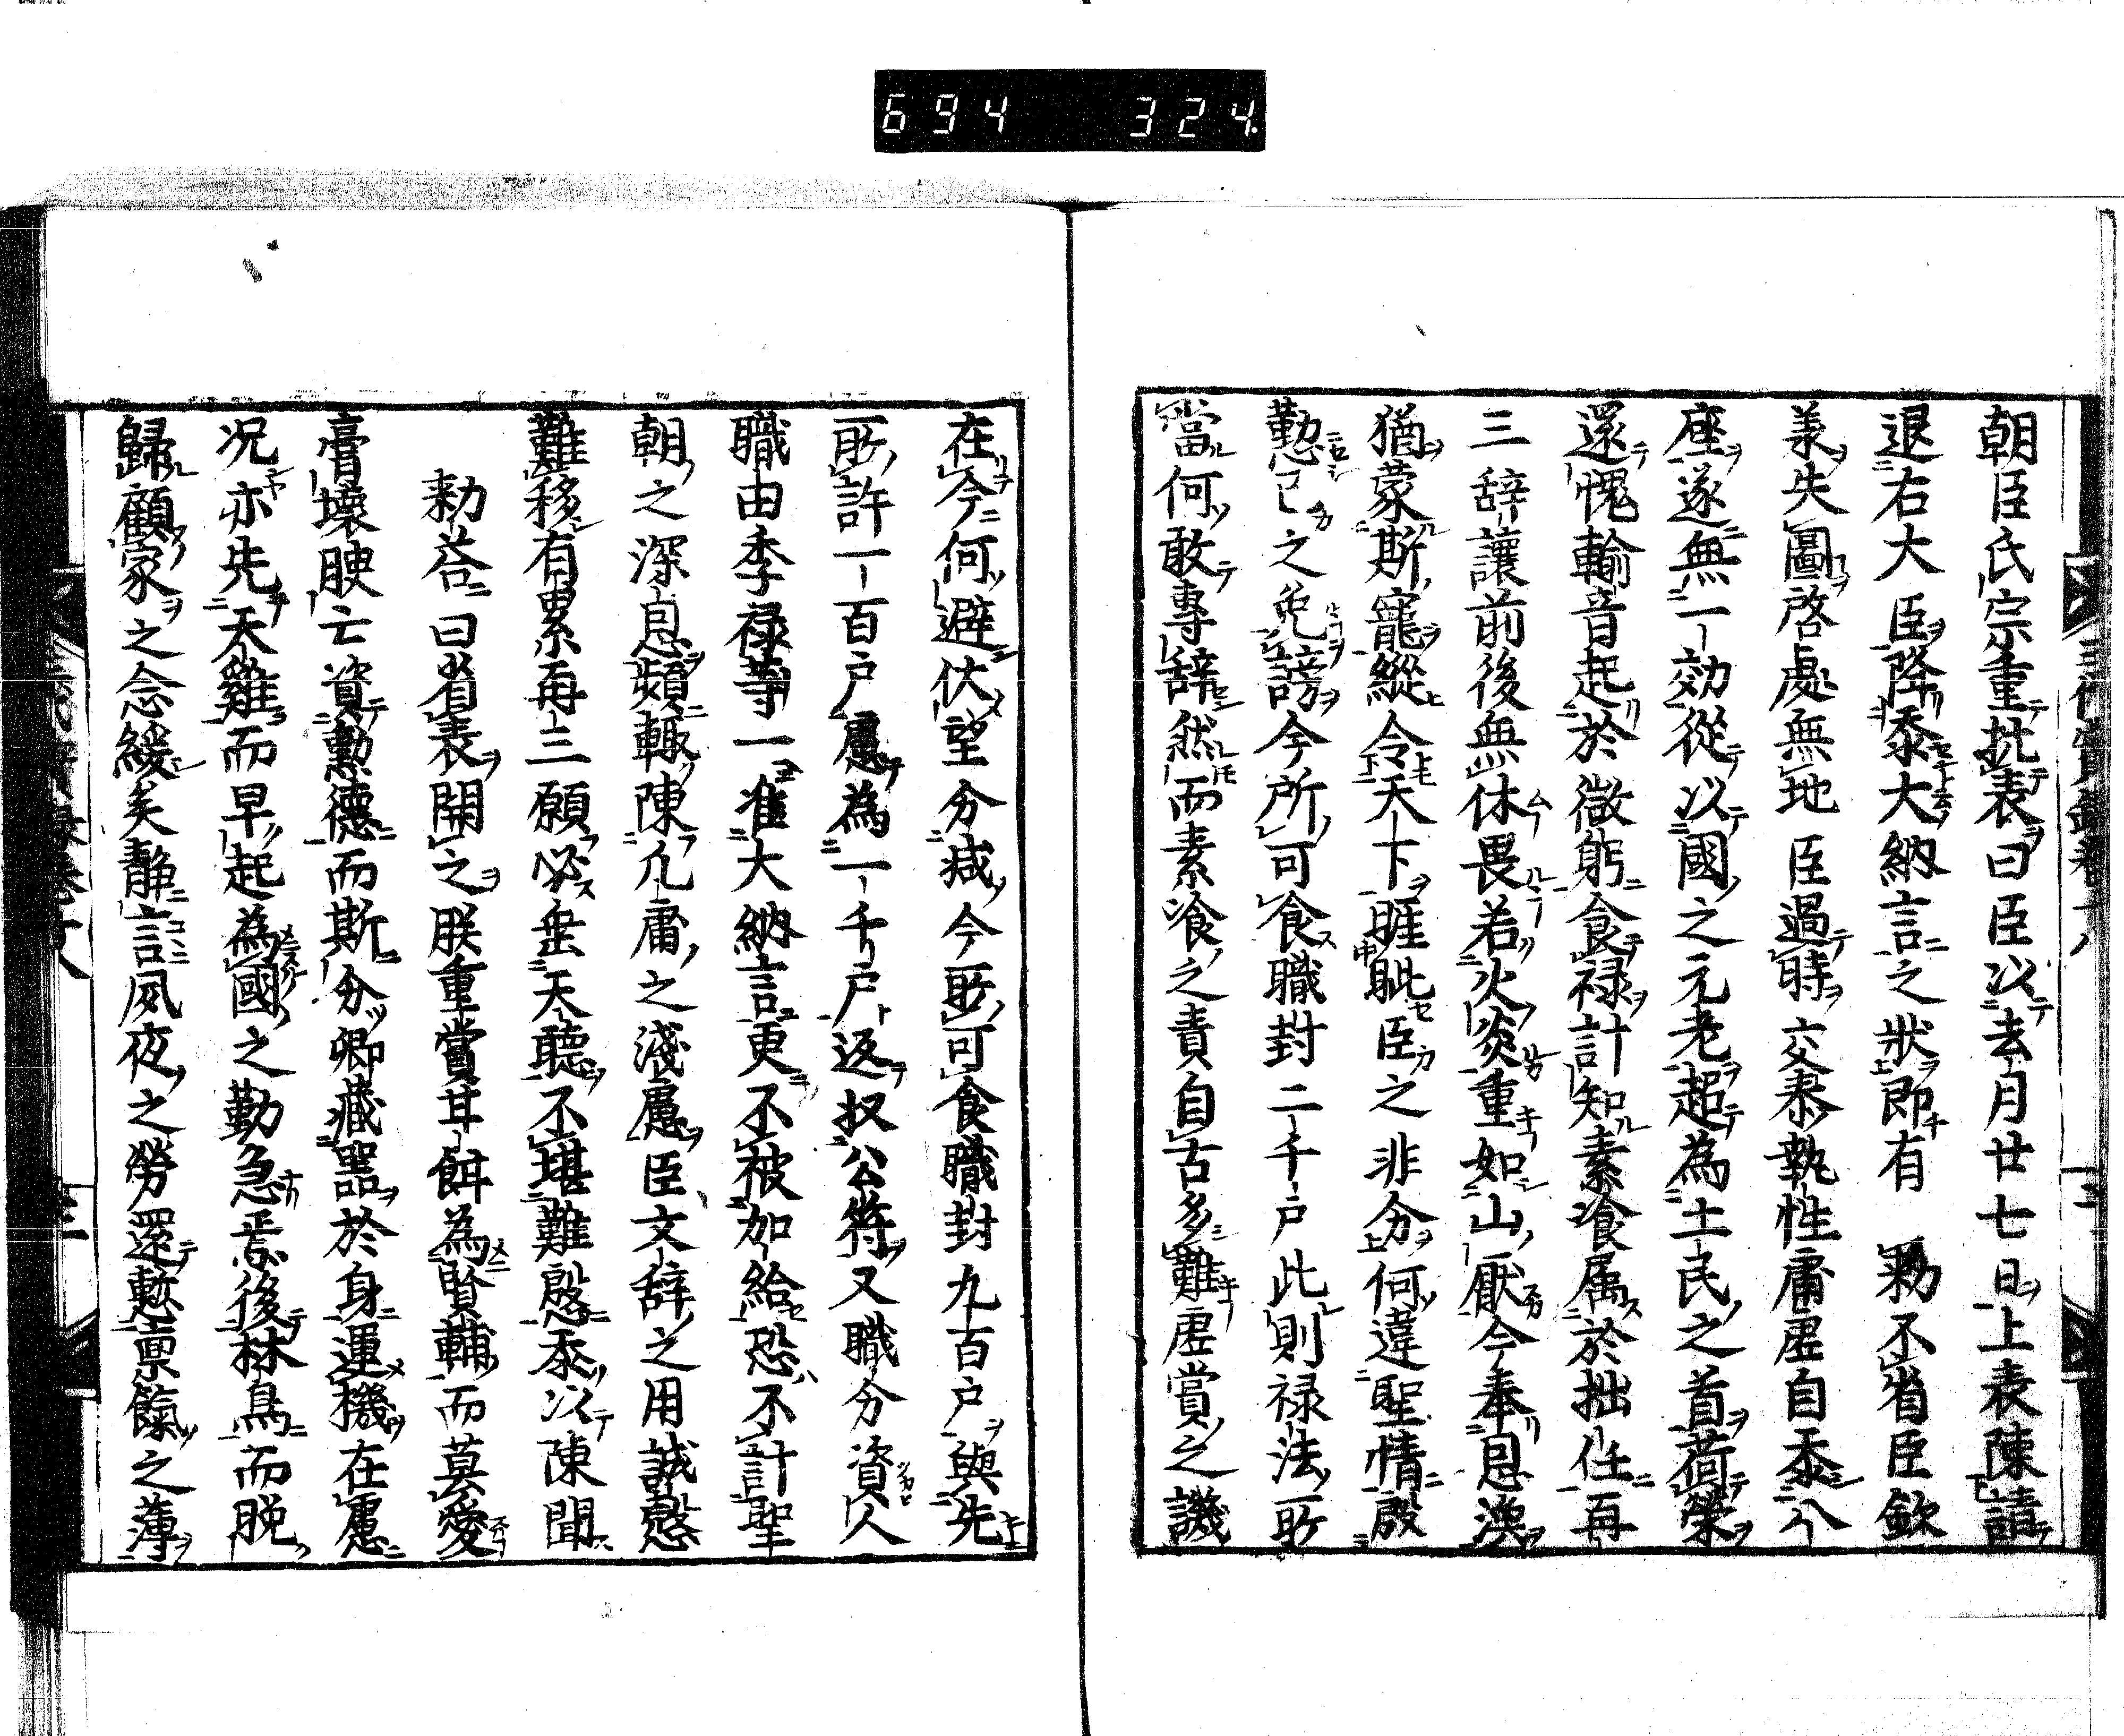 694 324
朝臣氏宗重抗表曰臣以去月廿七日上表陳請
退右大臣降黍大納言之狀即有 勅不省臣欽
羨失圖啓處無地臣過時交泰執性庸虛自忝八
座遂無一効從以國之元老超為土民之首荷榮
還愧輸音起於微躬食祿計知素飡属於拙任再
三辞讓前後無休畏若火炎重如山厭今奉恩渙
猶蒙斯寵縱令天下睚眦臣之非分何違聖情殷
懃已之免謗今所可食職封二千戶此則禄法所
當何敢專辞然而素飡之責自古多難虛賞之譏
在今何避伏望分減今所可食職封九百戶與先
所許一百戶慮為一千戶返奴公符又職分資人
職由季禄等一准大納言更不被加給恐不計聖
朝之深恩頻輙陳凢庸之淺慮臣文辞之用誠懃
難移有累再三願必垂天聽不堪難慇黍以陳聞
勅荅曰省表開之朕重賞甘餌為賢輔而莫愛
膏壤腴亡資勳德而斯分卿藏噐於身運機在慮
况亦先天雞而早起為國之勤急焉後林鳥而脱
歸顧家之念緩矣静言夙夜之勞還慙禀餼之薄